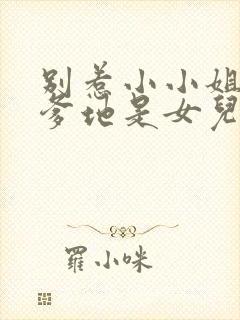 別惹小小姐
爹地是女兒
羅小咪